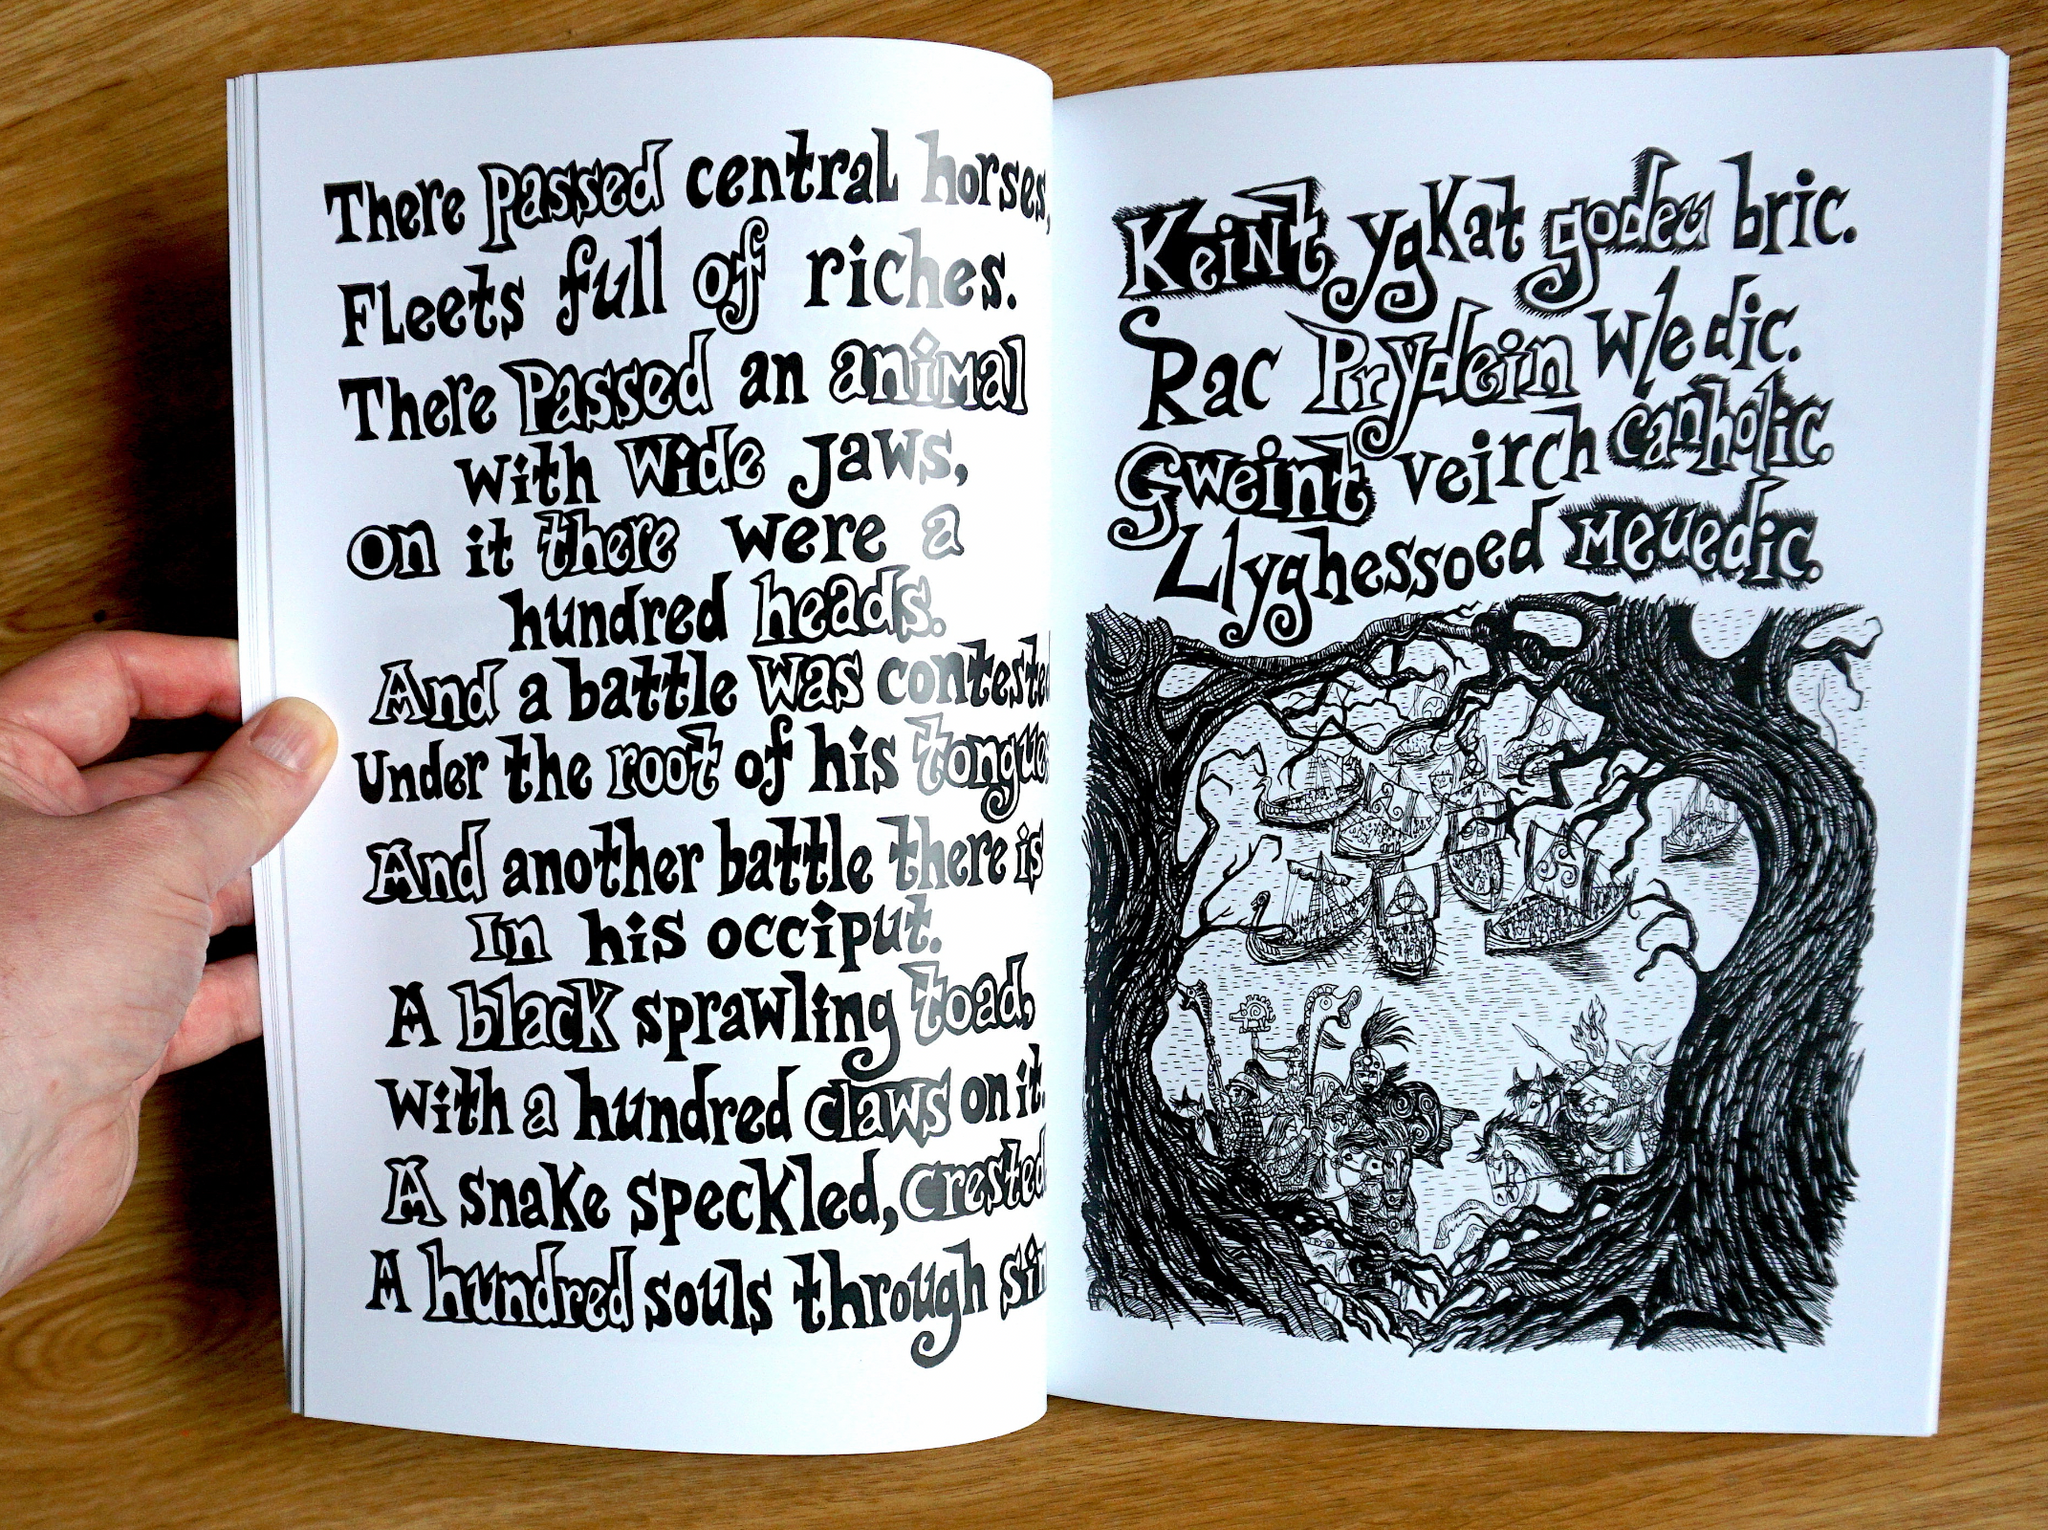 There passed central horses,
Fleets full of riches.
There passed an animal
with wide jaws,
on it there were a
hundred heads.
And a battle was contested
Under the root of his tongue
And another battle there is
In his occiput.
A black sprawling toad,
With a hundred claws on it.
A snake speckled, crested
A hundred souls through
Keint ygKat godeu bric.
Rac Prydein wledic.
Gweint veirch canholic.
Llyghessoed meuedic.